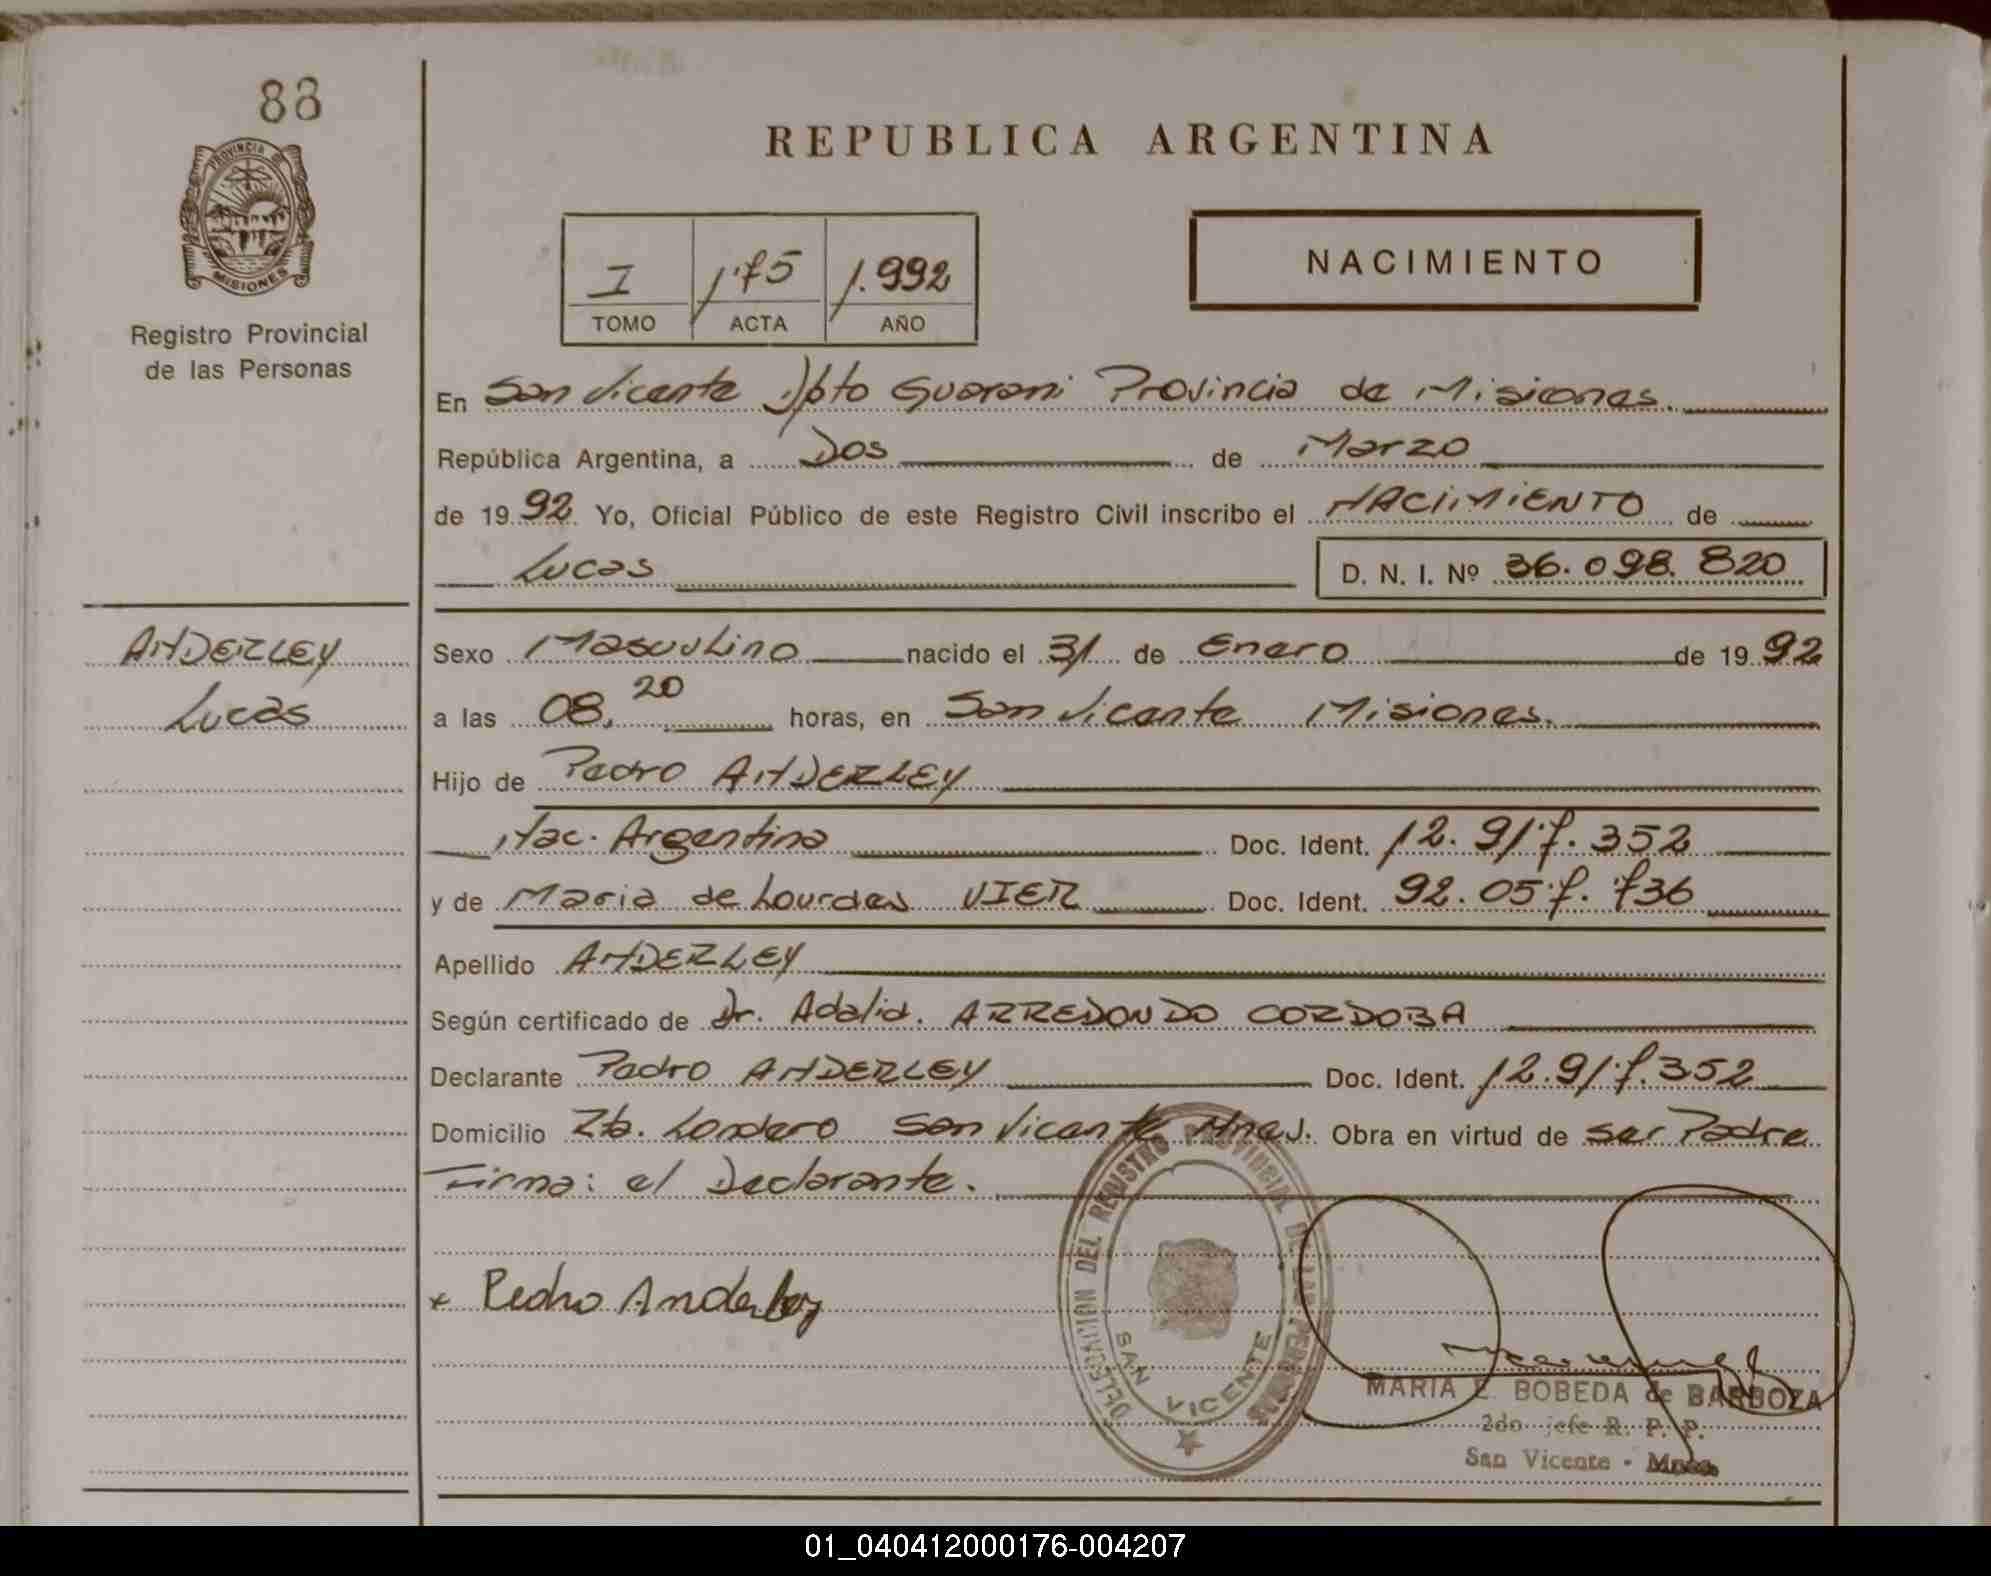 88
REPUBLICA ARGENTINA
PROVINCIA DE
MISIONES
Registro Provincial
de las Personas
I 175 1.992
TOMO ACTA AÑO
NACIMIENTO
En San Vicente Dpto Guarani Provincia de Misiones.
República Argentina, a Dos de Marzo
de 1992 Yo, Oficial Público de este Registro Civil inscribo el NACIMIENTO de
Lucas D. N. I. Nº 36.098.820
ANDERLEY
Lucas
Sexo Masculino nacido el 31 de Enero de 1992
a las 08,20 horas, en San Vicente Misiones.
Hijo de Pedro ANDERLEY
Nac. Argentina Doc. Ident. 12.917.352
y de Maria de Lourdes VIER Doc. Ident. 92.057.736
Apellido ANDERLEY
Según certificado de Dr. Adalid. ARREDONDO CORDOBA
Declarante Pedro ANDERLEY Doc. Ident. 12.917.352
Domicilio Zb. Londero San Vicente Mnes. Obra en virtud de ser Padre
Firma: el Declarante.
x Pedro Anderley
DELEGACION DEL REGISTRO PROVINCIAL DE LAS PERSONAS
SAN VICENTE
MARIA E. BOBEDA de BARBOZA
2do jefe R. P. P.
San Vicente - Mnes.
01_040412000176-004207